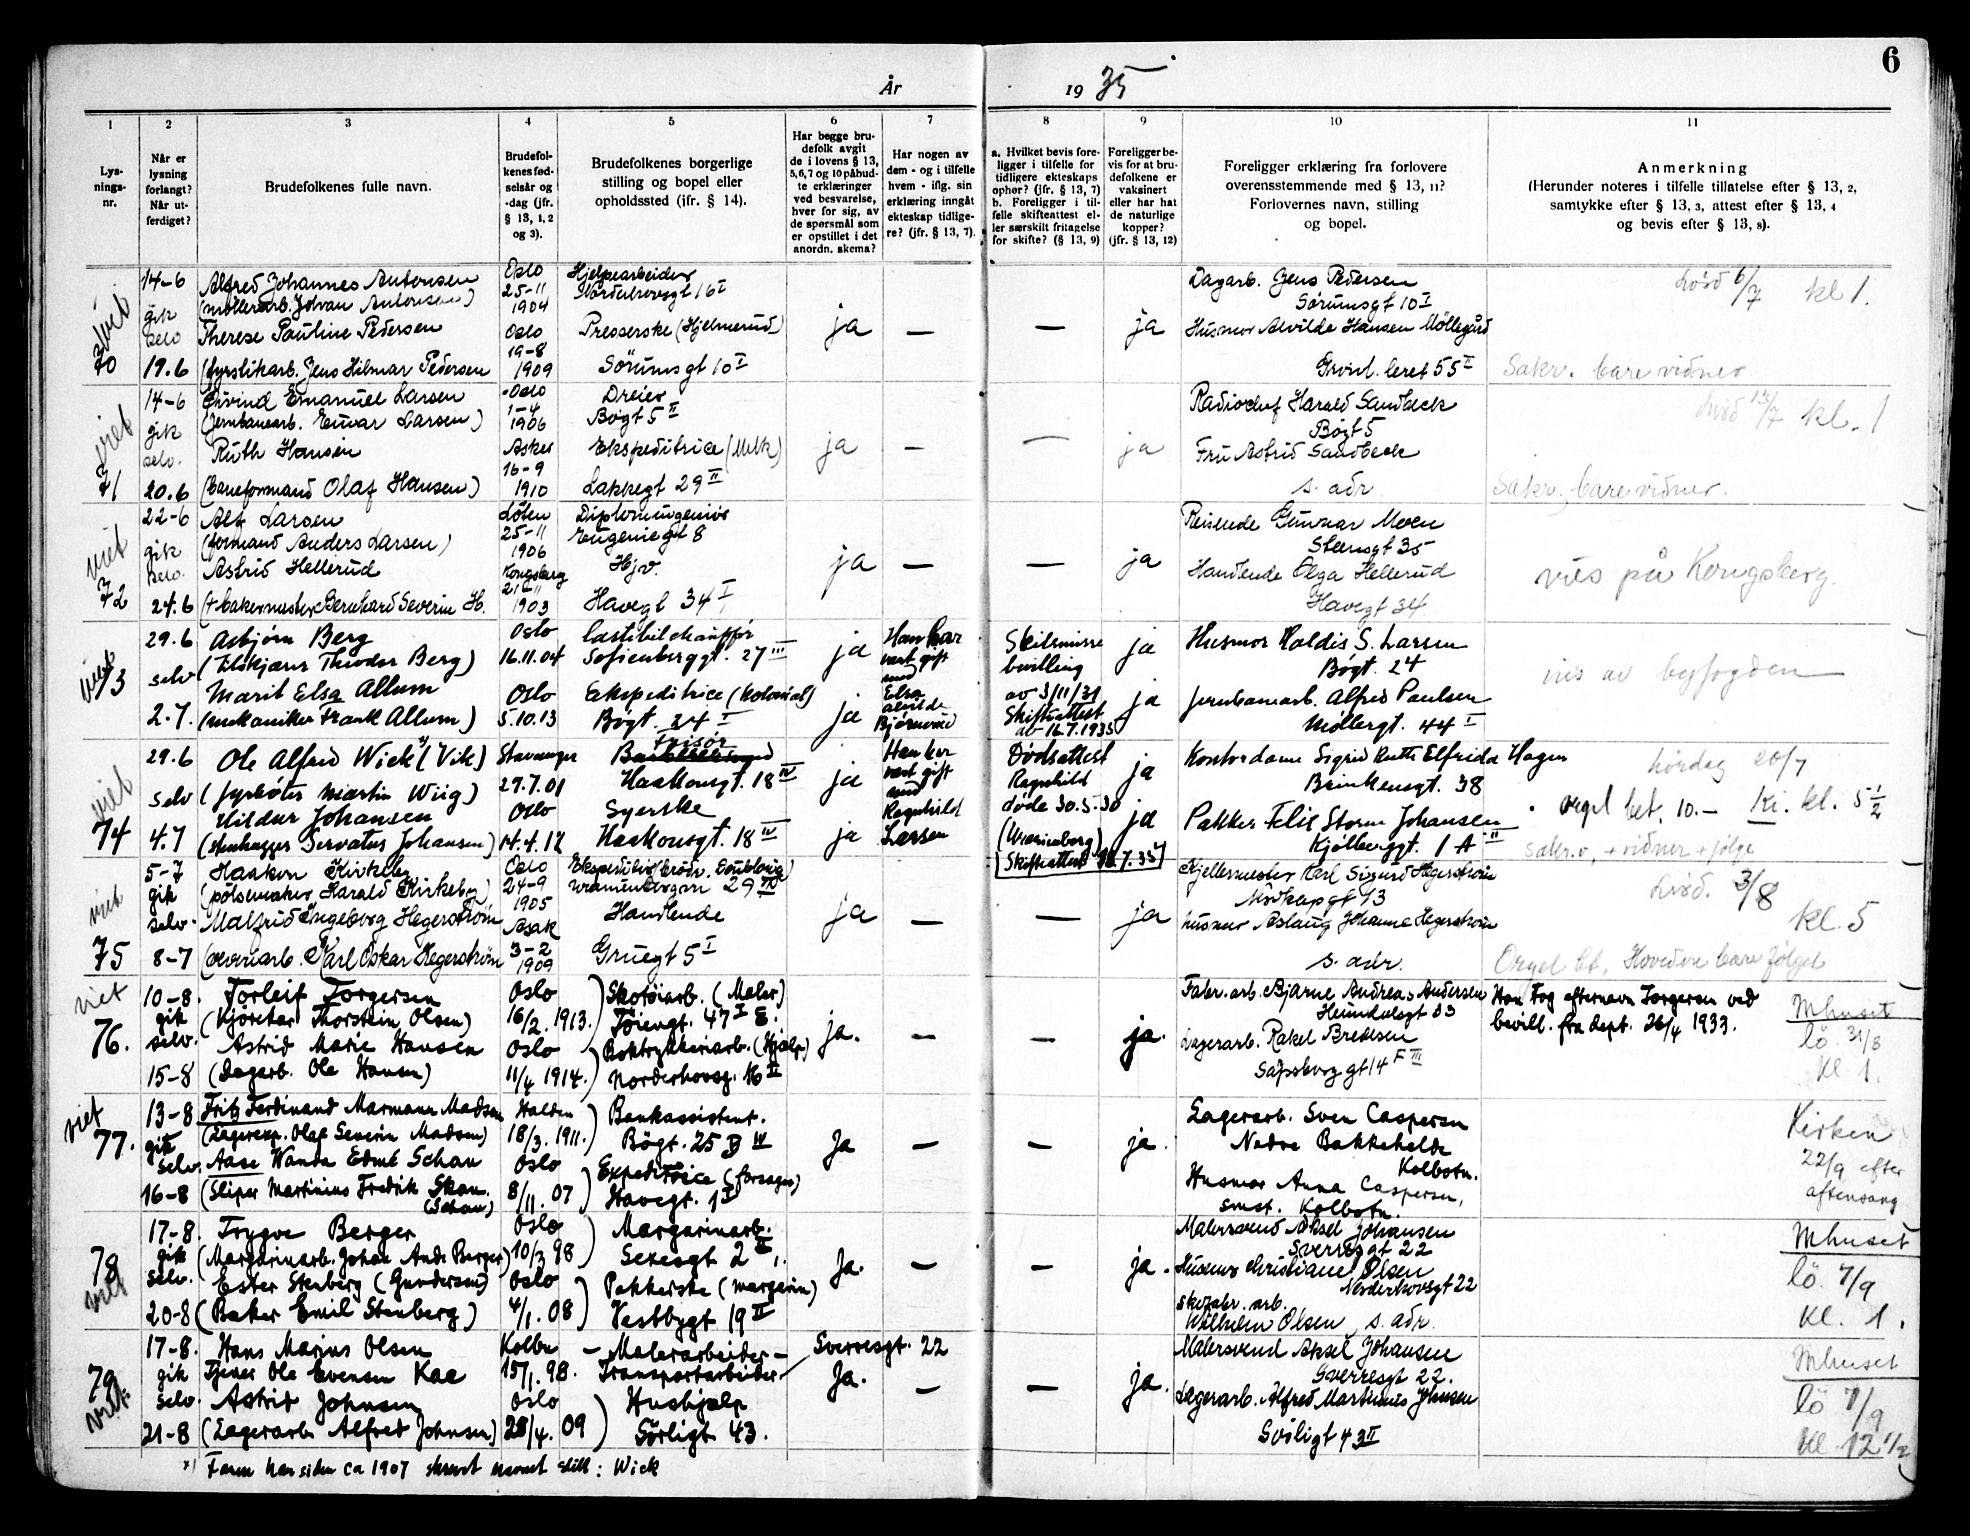 År 1935
6
1 2 3 4 5 6 7 8 9 10 11
Lys-
nings-
nr.
Når er
lysning
forlangt?
Når ut-
ferdiget?
Brudefolkenes fulle navn.
Brudefol-
kenes fød-
selsår og
-dag (jfr.
§ 13, 1, 2
og 3).
Brudefolkenes borgerlige
stilling og bopel eller
opholdssted (jfr. § 14).
Har begge bru-
defolk avgit
de i lovens § 13,
5,6,7 og 10 påbud-
te erklæringer
ved besvarelse,
hver for sig, av
de spørsmål som
er opstillet i det
anordn. skema?
Har nogen av
dem - og i tilfelle
hvem - iflg. sin
erklæring inngåt
ekteskap tidlige-
re? (jfr. § 13, 7).
a. Hvilket bevis fore-
ligger i tilfelle for
tidligere ekteskaps
ophør? (jfr. § 13, 7)
b. Foreligger i til-
felle skifteattest el-
ler særskilt fritagelse
for skifte? (§ 13, 9)
Foreligger be-
vis for at bru-
defolkene er
vaksinert
eller har hat
de naturlige
kopper?
(jfr. § 13, 12)
Foreligger erklæring fra forlovere
overensstemmende med § 13, 11?
Forlovernes navn, stilling
og bopel.
Anmerkning
(Herunder noteres i tilfelle tillatelse efter § 13, 2,
samtykke efter § 13, 3, attest efter § 13, 4
og bevis efter § 13, 8).
viet
70
14-6
gik
selv
19.6
Alfred Johannes Antonsen
(møllerarb. Johan Antonsen)
Therese Pauline Pedersen
(fyrstikarb. Jens Hilmar Pedersen
Oslo
25-11
1904
Oslo
19-8
1909
Hjelpearbeider
Norderhovsgt 16 I
Presserske (Hjelmerud)
Sörumsgt 10 I
ja — — ja
Lagarb. Jens Pedersen
Sørumsgt 10 I
Husmor Alvilde Hansen Möllegård
Grønl. leret 55 II
Lörd 6/7 kl 1.
Sakr. bare vidner
viet
71
14-6
gik
selv.
20.6
Eivind Emanuel Larsen
(Jernbanearb. Einar Larsen)
Ruth Hansen
(baneformand Olaf Hansen)
Oslo
1-4
1906
Asker
16-9
1910
Dreier
Bøgt 5 II
Ekspeditrice (Melk)
Lakkegt 29 II
ja — — ja
Radiochef Harald Sandbeck
Bögt 5
Fru Astrid Sandbeck
s. adr
Lörd 13/7 kl. 1
Sakr. bare vidner.
viet
72
22-6
gik
selv.
24.6
Alf Larsen
(formand Anders Larsen)
Astrid Hellerud
(+ bakermester Bernhard Severin H.
Löten
25-11
1906
Kongsberg
1903
Diplomingeniör
Eugeniegt 8
Hjv.
Havegt 34 I
ja — — ja
Reisende Gunnar Moen
Steensgt 35
Handlende Olga Hellerud
Havegt 34
vies på Kongsberg.
viet
73
29.6
selv
2.7.
Asbjørn Berg
(Tilskjærer Theodor Berg)
Marit Elsa Allum
(mekaniker Frank Allum)
Oslo
16.11.04
Oslo
5.10.13
Lastebilchauffør
Sofienberggt. 27 III
Ekspeditrice (kolonial)
Bøgt. 24 I
ja
ja
Han har
vært gift
med
Elsa
Alvilde
Bjørnerud
Skilsmisse
bevilling
av 3/11/31
Skifteattest
av 16.7.1935
ja
ja
Husmor Haldis S. Larsen
Bøgt. 24
Jernbanearb. Alfred Paulsen
Møllergt. 44 I
vies av byfogden
viet
74
29.6
selv
4.7
Ole Alfred Wick x) (Vik)
(fyrbøter Martin Wiig)
Hildur Johansen
(stenhugger Servatus Johansen)
Stavanger
27.7.01
Oslo
14.4.12
Frisör
Haakonsgt. 18 IV
Syerske
Haakonsgt. 18 IV
ja
ja
Han har
vært gift
med
Ragnhild
Larsen
Dødsattest
Ragnhild
døde 30.5.30
(Uranienborg)
Skifteattest 16.7.35
ja
ja
Kontordame Sigrid Ruth Elfrida Hagen
Brinkensgt. 38
Pakker Felix Storm Johansen
Kjölberggt. 1 A II
Lørdag 20/7
orgel bet. 10.- Ki. kl. 5 1/2
sakr.o, + vidner + følge
viet
75
5-7
gik
selv.
8-7
Haakon Kirkeby
(pölsemaker Harald Kirkeby)
Malfrid Ingeborg Hegerström
(Karl Oskar Hegerström
Oslo
24-9
1905
Asak
3-2
1909
29 IV
Handlende
Gruegt 5 I
ja — — ja
Kjellermester Karl Sigurd Hegerström
Nordkapgt 13
Husmor Aslaug Johanne Hegerström
s. adr.
Lörd. 3/8
kl. 5
Orgel bt. Hovedore bare følget
viet
76.
10-8.
gik
selv.
15-8
Torleif Torgersen
(Kjörekar Thorstein Olsen)
Astrid Marie Hansen
(Dagarb. Ole Hansen)
Oslo
16/2. 1913.
Oslo
11/4 1914.
Skotöiarb. (Maler)
Töiengt. 47 I E.
Boktrykkeriarb. (Hjælp)
Norderhovsg. 16 II
ja. — — ja.
Fabr. arb. Bjarne Andreas Andersen
Heimdalsgt 33
Lagerarb. Rakel Bredesen
Sarpsborg gt 14 F III
Han tog efternavn Torgersen ved
bevill. fra dept. 26/4 1933.
Mhuset
lö. 31/8
kl 1.
viet
77.
13-8
gik
selv.
16-8
Fritz Ferdinand Marmann Madsen
(Lagereksp. Olaf Severin Madsen)
Aase Wanda Edmé Schau
(Sliper Martinius Fredrik Skau.
(Schau)
Halden
18/3. 1911.
Oslo
8/11. 07
Bankassistent.
Bögt. 25 B IV
Expeditrice (forsager)
Havegt. 1 I
Ja — — ja.
Lagerarb. Sven Caspersen
Nedre Bakkehelde
Kolbotn.
Husmor Anna Caspersen,
smst. Kolbotn.
Kirken
22/9 efter
aftensang
78
viet
17-8.
gik
selv.
20-8
Trygve Berger
(Margarinarb. Johan Andr. Berger)
Ester Stenberg (Gundersen)
(Baker Emil Stenberg)
Oslo
10/3 98
Oslo
4/1. 08
Margarinarb.
Sexesgt 2 II.
Pakkerske (margarin)
Vestbygt 19 II
Ja. — — ja.
Malersvend Aksel Johansen
Sverresgt 22
Husmor Christiane Olsen
Norderhovsgt 22
skofabr. arb.
Wilhelm Olsen, s. adr.
Mhuset
lö. 7/9
kl. 1.
79
viet.
17-8.
gik
selv.
21-8
Hans Marius Olsen
Tjener Ole Evensen Kae
Astrid Johnsen
(Lagerarb. Alfred Johnsen)
Kolbu
15/1. 98.
Oslo
28/4. 09
— Malerarbeider —
Transportarbeider
Sverresgt. 22
Hushjælp
Sörligt 43.
Ja. — — ja.
Malersvend Aksel Johansen
Sverresgt 22.
Lagerarb. Alfred Martinius Johnsen
Sörligt 43 II
Mhuset
lö 7/9
kl. 12 1/2
x) Faren har siden ca 1907 skrevet navnet slik: Wick